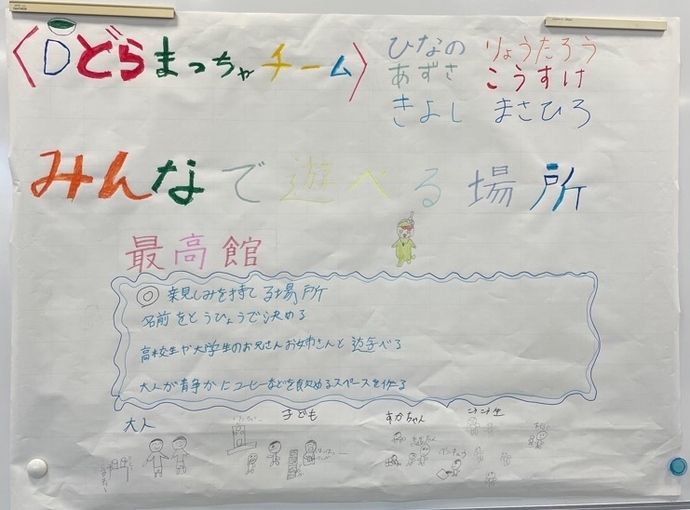 〈どらまっちゃチーム〉
ひなの りょうたろう
あずさ こうすけ
きよし まさひろ
みんなで遊べる場所
最高館
◎親しみを持てる場所
名前をとうひょうで決める
高校生や大学生のお兄さんお姉さんと遊べる
大人が静かにコーヒーなどを飲めるスペースを作る
大人 子ども 赤ちゃん